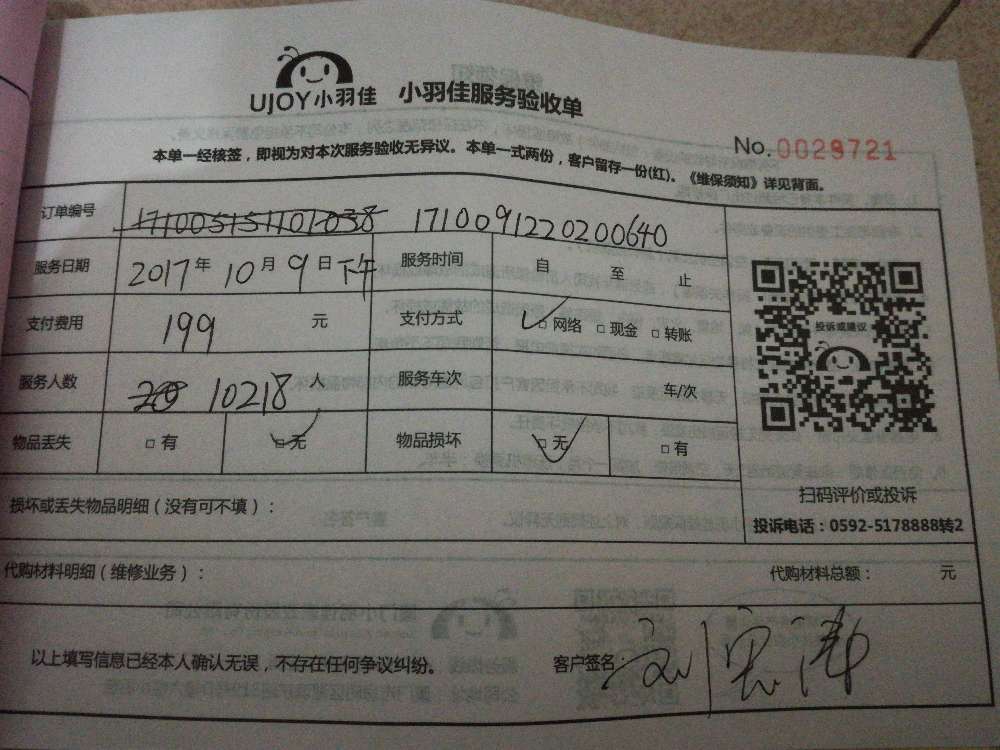 UJOY小羽佳 小羽佳服务验收单
No. 0029721
本单一经核签，即视为对本次服务验收无异议。本单一式两份，客户留存一份(红)。《维保须知》详见背面。
订单编号 171005151101038 1710091220200640
服务日期 2017年10月9日下午 服务时间 自 至 止
支付费用 199 元 支付方式 ✓□网络 □现金 □转账
服务人数 10218人 服务车次 车/次
物品丢失 □有 ☑无 物品损坏 ☑无 □有
投诉或建议
扫码评价或投诉
投诉电话：0592-5178888转2
损坏或丢失物品明细（没有可不填）：
代购材料明细（维修业务）： 代购材料总额： 元
以上填写信息已经本人确认无误，不存在任何争议纠纷。 客户签名：